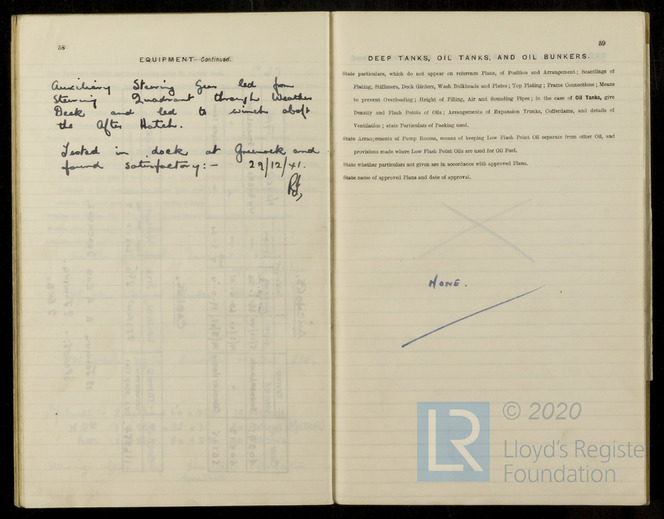 58
EQUIPMENT—Continued.
Auxiliary Steering Gear led from
Steering Quadrant through Weather
Deck and led to winch abaft
the After Hatch.
Tested in dock at Greenock and
found satisfactory:- 29/12/41.
59
DEEP TANKS, OIL TANKS, AND OIL BUNKERS.
State particulars, which do not appear on reference Plans, of Position and Arrangement; Scantlings of
Plating, Stiffeners, Deck Girders, Wash Bulkheads and Plates; Top Plating; Frame Connections; Means
to prevent Overloading; Height of Filling, Air and Sounding Pipes; in the case of Oil Tanks, give
Density and Flash Points of Oils; Arrangements of Expansion Trunks, Cofferdams, and details of
Ventilation; state Particulars of Packing used.
State Arrangements of Pump Rooms, means of keeping Low Flash Point Oil separate from other Oil, and
provisions made where Low Flash Point Oils are used for Oil Fuel.
State whether particulars not given are in accordance with approved Plans.
State name of approved Plans and date of approval.
NONE.
LR
© 2020
Lloyd's Registe
Foundation